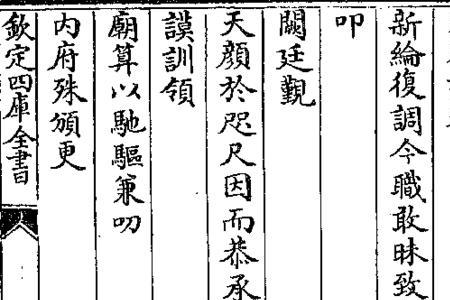 新綸復調今職敢昧致
叩
闕廷覲
天顔於咫尺因而恭承
謨訓領
廟算以馳驅兼叨
内府殊頒更
欽定四庫全書